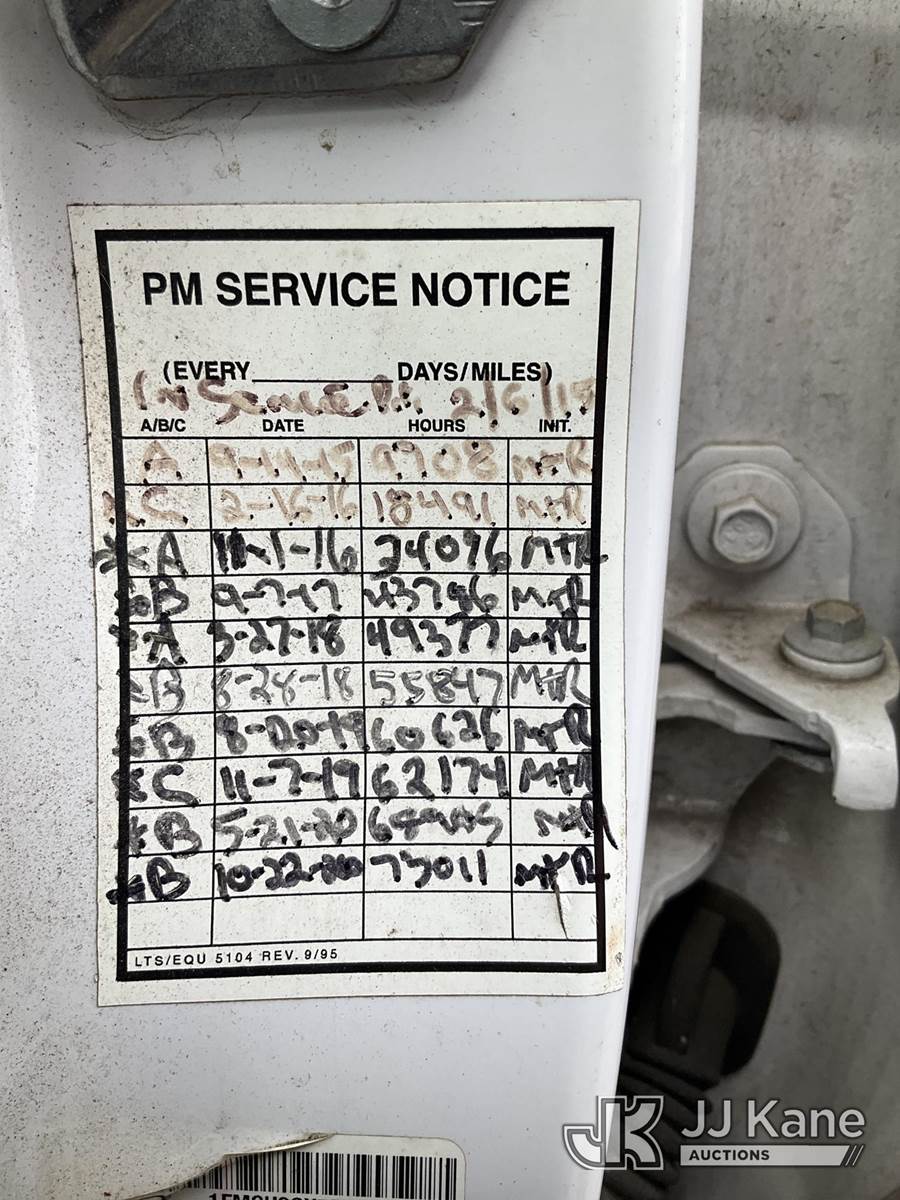 PM SERVICE NOTICE
(EVERY____________DAYS/MILES)
In Service 2/6/15
A/B/C DATE HOURS INIT.
A 9-11-15 9708 MTR
*C 2-16-16 18491 MTR
*A 11-1-16 34096 MTR
*B 9-7-17 43746 MTR
*A 3-27-18 49377 MTR
*B 8-28-18 55847 MTR
*B 8-20-19 60626 MTR
*C 11-7-19 62174 MTR
*B 5-21-20 MTR
*B 10-22-20 73011 MTR
LTS/EQU 5104 REV. 9/95
JK JJ Kane
AUCTIONS